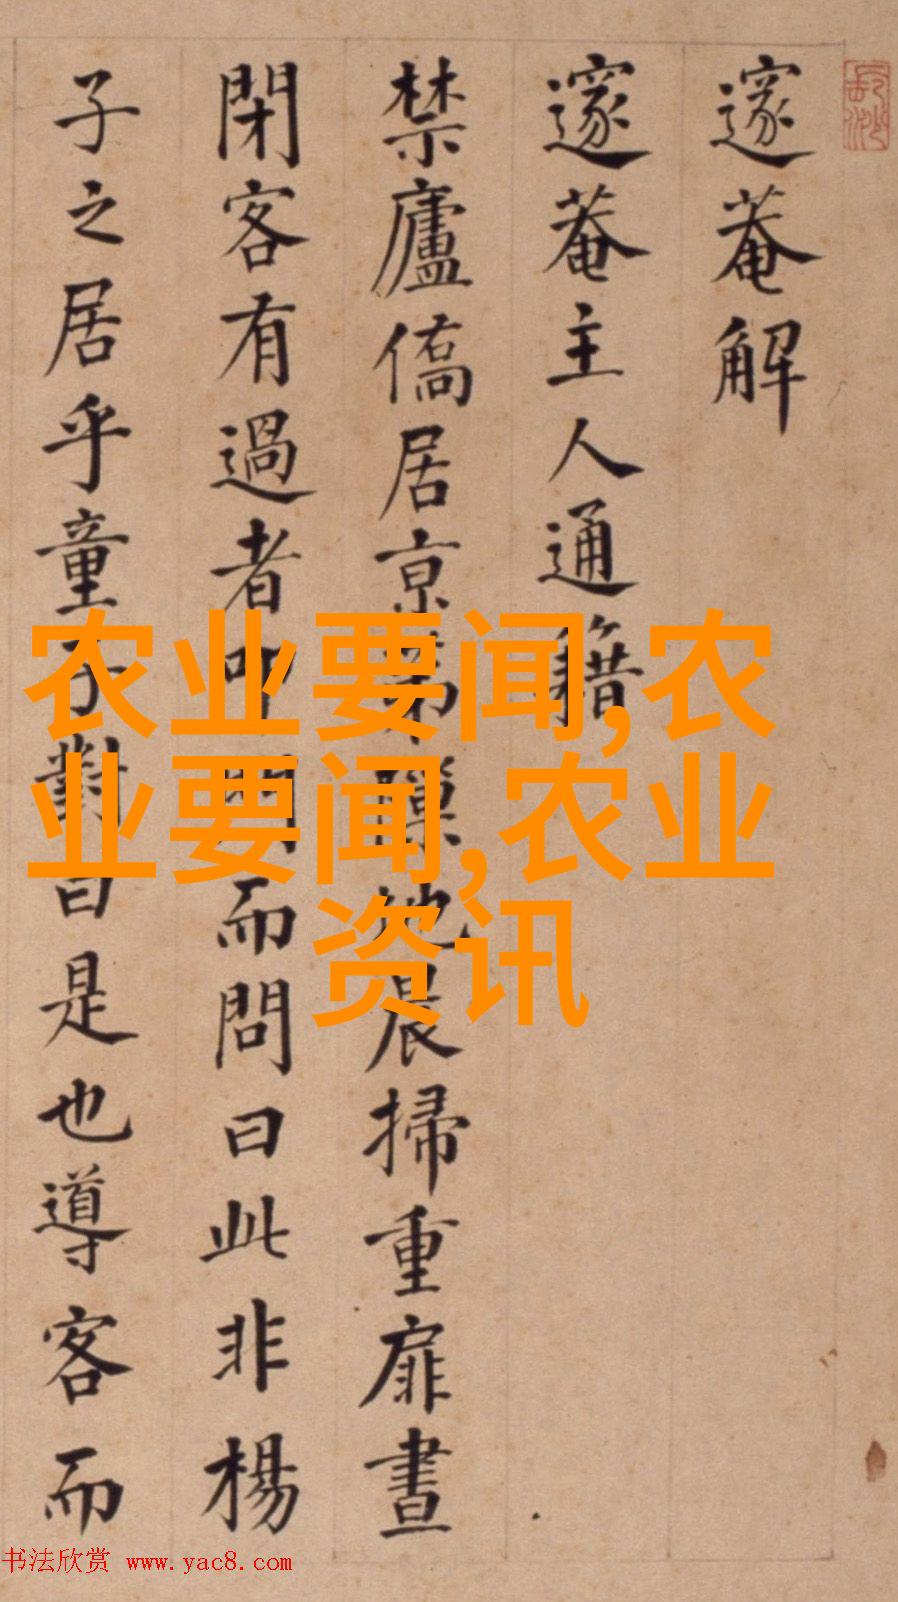 邃菴解
邃菴主人通籍
禁廬僑居京第隙地晨掃重扉晝
閉客有過者叩門而問曰此非楊
子之居乎童子對曰是也導客而
农业要闻,农
业要闻,农业
资讯
书法欣赏 www.yac8.com